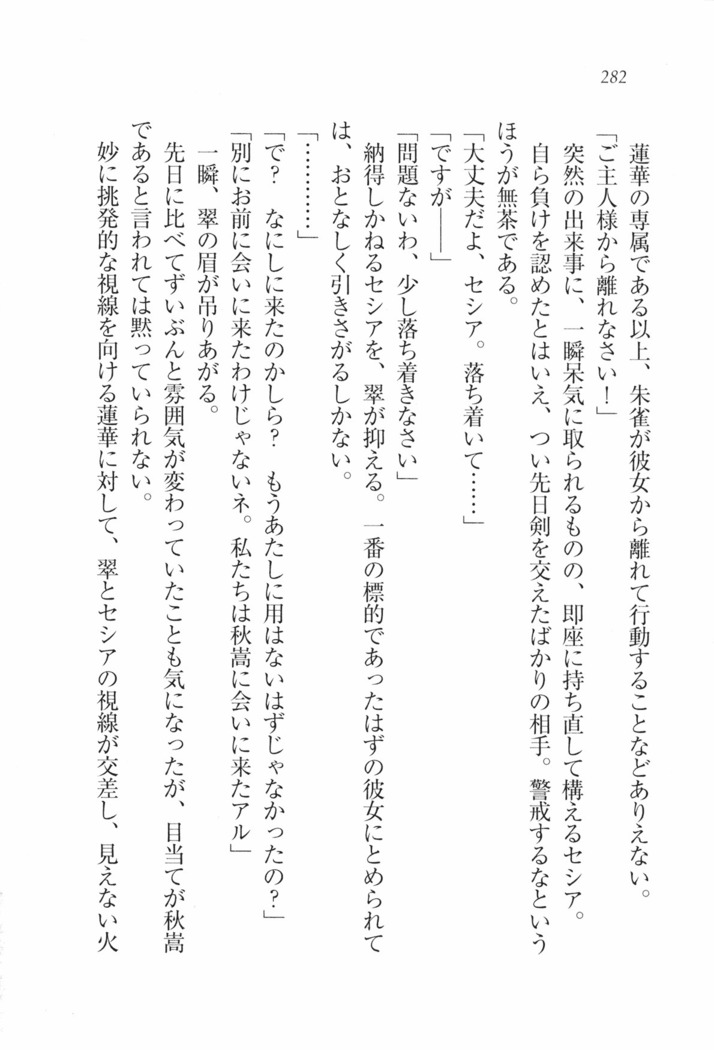 282
蓮華の専属である以上、朱雀が彼女から離れて行動することなどありえない。
「ご主人様から離れなさい！」
突然の出来事に、一瞬呆気に取られるものの、即座に持ち直して構えるセシア。
自ら負けを認めたとはいえ、つい先日剣を交えたばかりの相手。警戒するなという
ほうが無茶である。
「大丈夫だよ、セシア。落ち着いて……」
「ですが――」
「問題ないわ、少し落ち着きなさい」
納得しかねるセシアを、翠が抑える。一番の標的であったはずの彼女にとめられて
は、おとなしく引きさがるしかない。
「…………」
「で？　なにしに来たのかしら？　もうあたしに用はないはずじゃなかったの？」
「別にお前に会いに来たわけじゃないネ。私たちは秋嵩に会いに来たアル」
一瞬、翠の眉が吊りあがる。
先日に比べてずいぶんと雰囲気が変わっていたことも気になったが、目当てが秋嵩
であると言われては黙っていられない。
妙に挑発的な視線を向ける蓮華に対して、翠とセシアの視線が交差し、見えない火